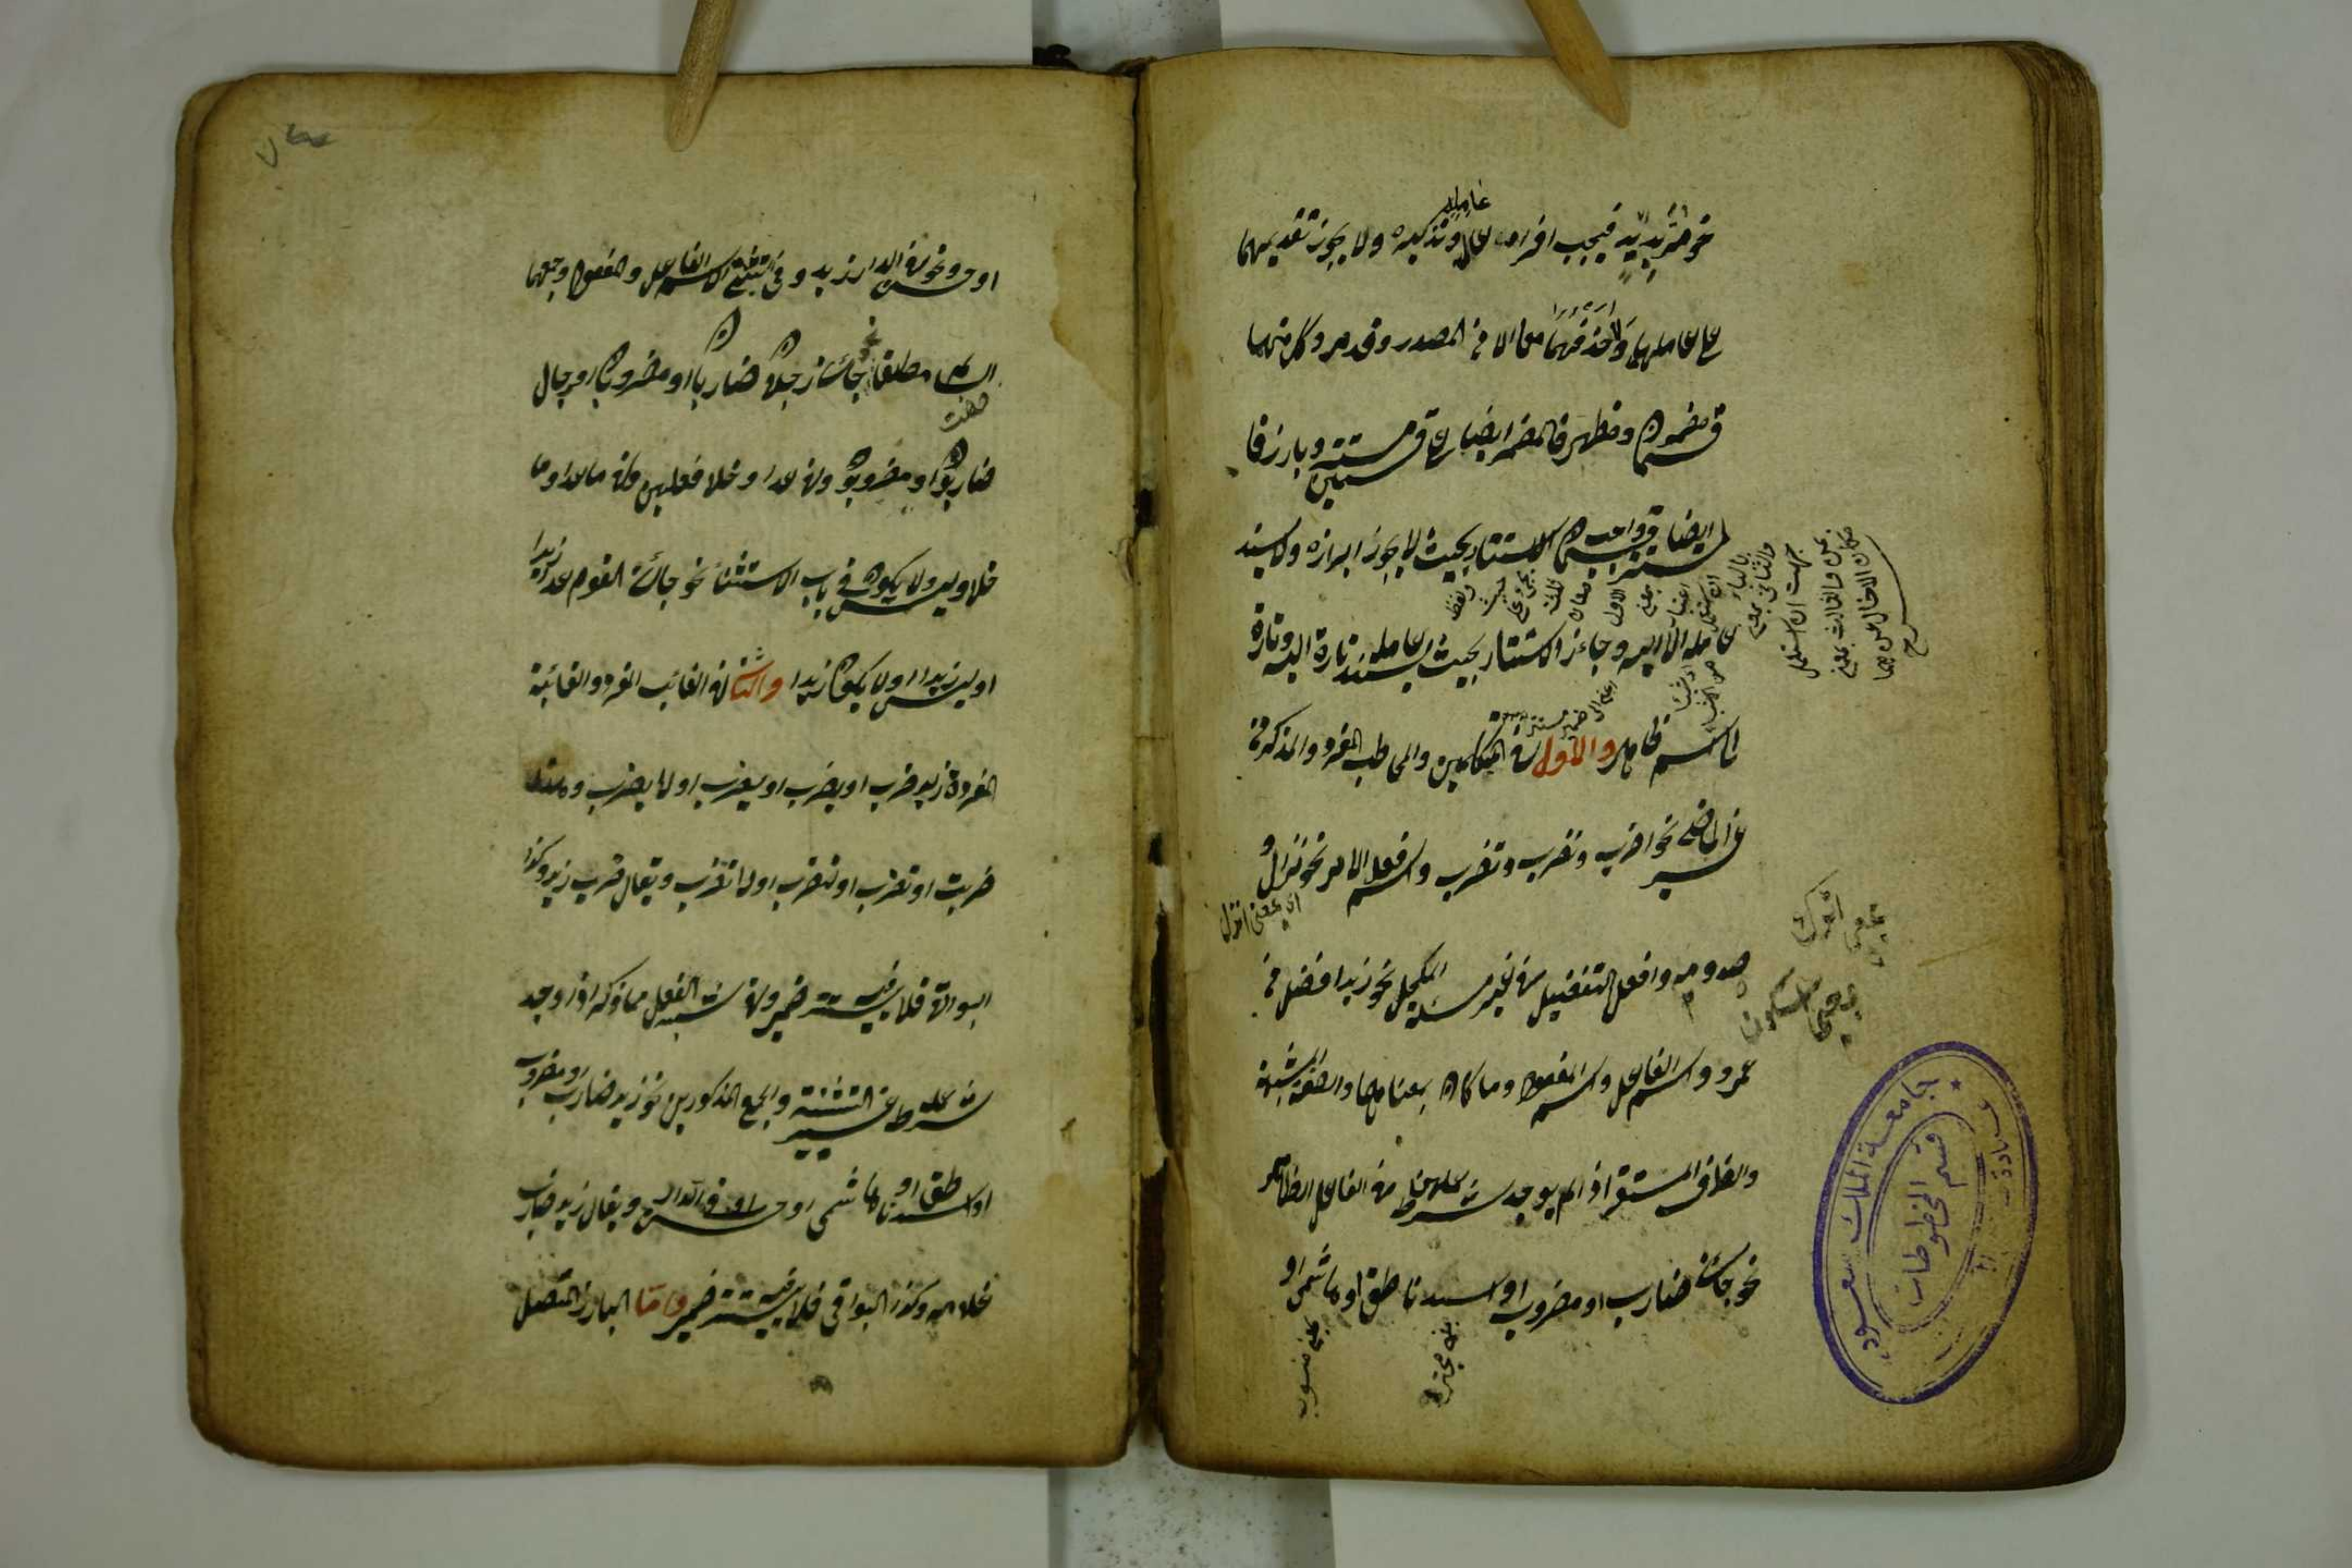 نحو مر بزيد فيجب افراد عامله وتذكيره ولا يجوز تقديمهما
على عاملهما ولا حذفهما معا الا في المصدر وقد مر وكل منهما
قسمان مضمر ومظهر فالمضمر ايضا على قسمين مستتر وبارز فا
لمستتر ايضا قسمان واجب الاستتار بحيث لا يجوز ابرازه ولا يسند
عامله الا اليه وجائز الاستتار بحيث يسند عامله تارة اليه وتارة
الى اسم ظاهر والاول في المتكلمين والمخاطب المفرد والمذكر في
غير الماضي نحو اضرب ونضرب وتضرب واسم فعل الامر نحو نزال و
صه ومه وافعل التفضيل في غير مسئلة الكحل نحو زيد افضل من
عمرو واسم الفاعل واسم المفعول وما كان بمعناهما والصفة المشبهة
والظرف المستقر اذا لم يوجد شرط عملهن في الفاعل الظاهر
نحو جائني ضارب او مضروب او اسد ناطق او هاشمي او
بمعنى انزل
بمعنى اترك
بمعنى اسكت
بمعنى منسوب
جامعة الملك سعود
قسم المخطوطات
او حسن ونحو في الدار زيد وفي تثنية اسم الفاعل والمفعول وجمعهما
السالم مطلقا نحو جائني رجلان ضاربان او مضروبان او رجال
صفت
ضاربون او مضروبون وفي عدا وخلا فعلين وفي ما عدا وما
خلا وليس ولا يكون في باب الاستثناء نحو جائني القوم عدا زيدا
او ليس زيدا او لا يكون زيدا والثاني في الغائب المفرد والغائبة
المفردة زيد ضرب او يضرب او ليضرب او لا يضرب وهند
ضربت او تضرب او لتضرب او لا تضرب ويقال ضرب زيد وكذا
البواقي فلا يستتر فيه ضمير وفي شبه الفعل مما ذكر اذا وجد
شرط عمله غير التثنية والجمع المذكورين نحو زيد ضارب او مضروب
او اسد ناطق او هاشمي او حسن او في الدار ويقال زيد ضارب
غلامه وكذا البواقي فلا يستتر فيه ضمير واما البارز المتصل